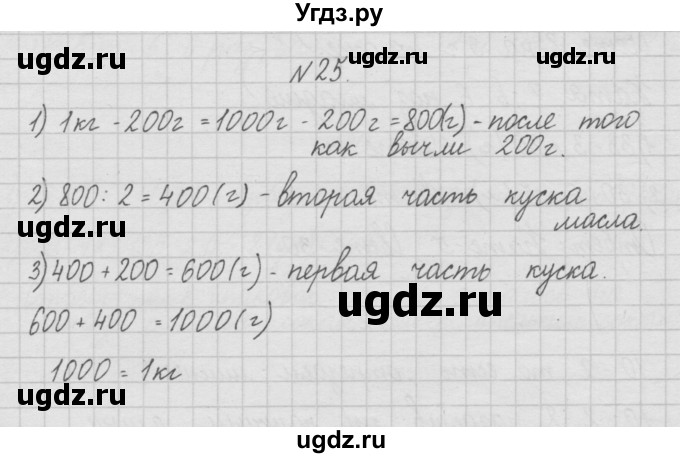 Угдз.ру
ugdz.ru ugdz.ru
№25.
1) 1кг - 200г = 1000г - 200г = 800(г) - после того
как вычли 200г.
ugdz.ru ugdz.ru
2) 800 : 2 = 400 (г) - вторая часть куска
масла.
3) 400 + 200 = 600 (г) - первая часть куска.
ugdz.ru
600 + 400 = 1000 (г)
1000 = 1кг
ugdz.ru ugdz.ru
ugdz.ru